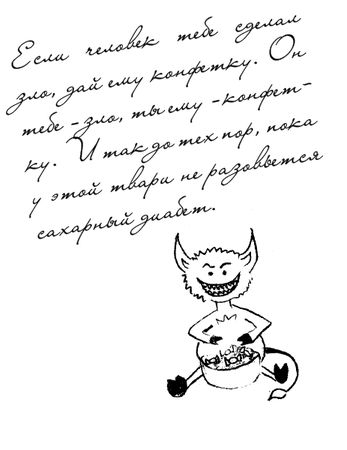 Если человек тебе сделал
зло, дай ему конфетку. Он
тебе - зло, ты ему - конфет-
ку. И так до тех пор, пока
у этой твари не разовьется
сахарный диабет.